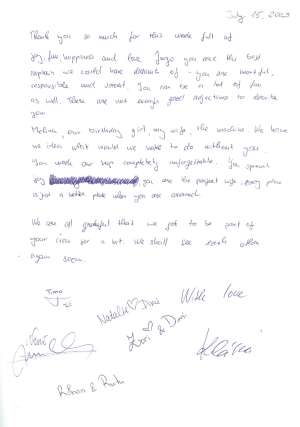 July 15, 2023
Thank you so much for this week full of
joy, fun, happiness and love. you are the best
captain we could have dreamed of - you are
responsible and You can be a lot of fun
as well. There are not enough good adjectives to describe
you.
our birthday girl, my wife, the machine. We have
no idea what would we want to do without you.
You made our trip completely unforgettable.
you are the perfect wife. Every place
is just a better place when you are around.
We are all grateful that we got to be part of
your crew for a bit. We shall see each other
again soon.
Timo
With love
Natalie Dani
Zori & Dori
Klárii